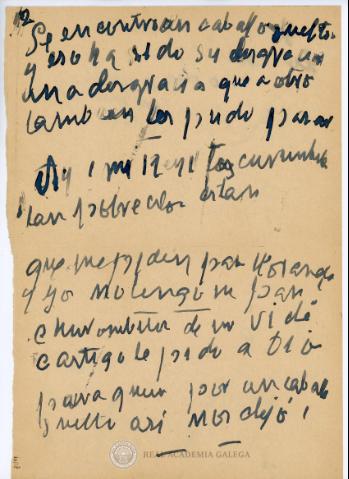 2
Se encontró un caballo suelto
y eso ha sido su desgracia
una desgracia que a otro
tambien les pudo pasar
Ay! mi
tan pobrecitos estan
que me piden pan llorando
y yo no tengo ni pan
churumbelitos de mi vida
castigo le pido a Dio
para quien por un caballo
suelto asi nos dejó!
REAL ACADEMIA GALEGA